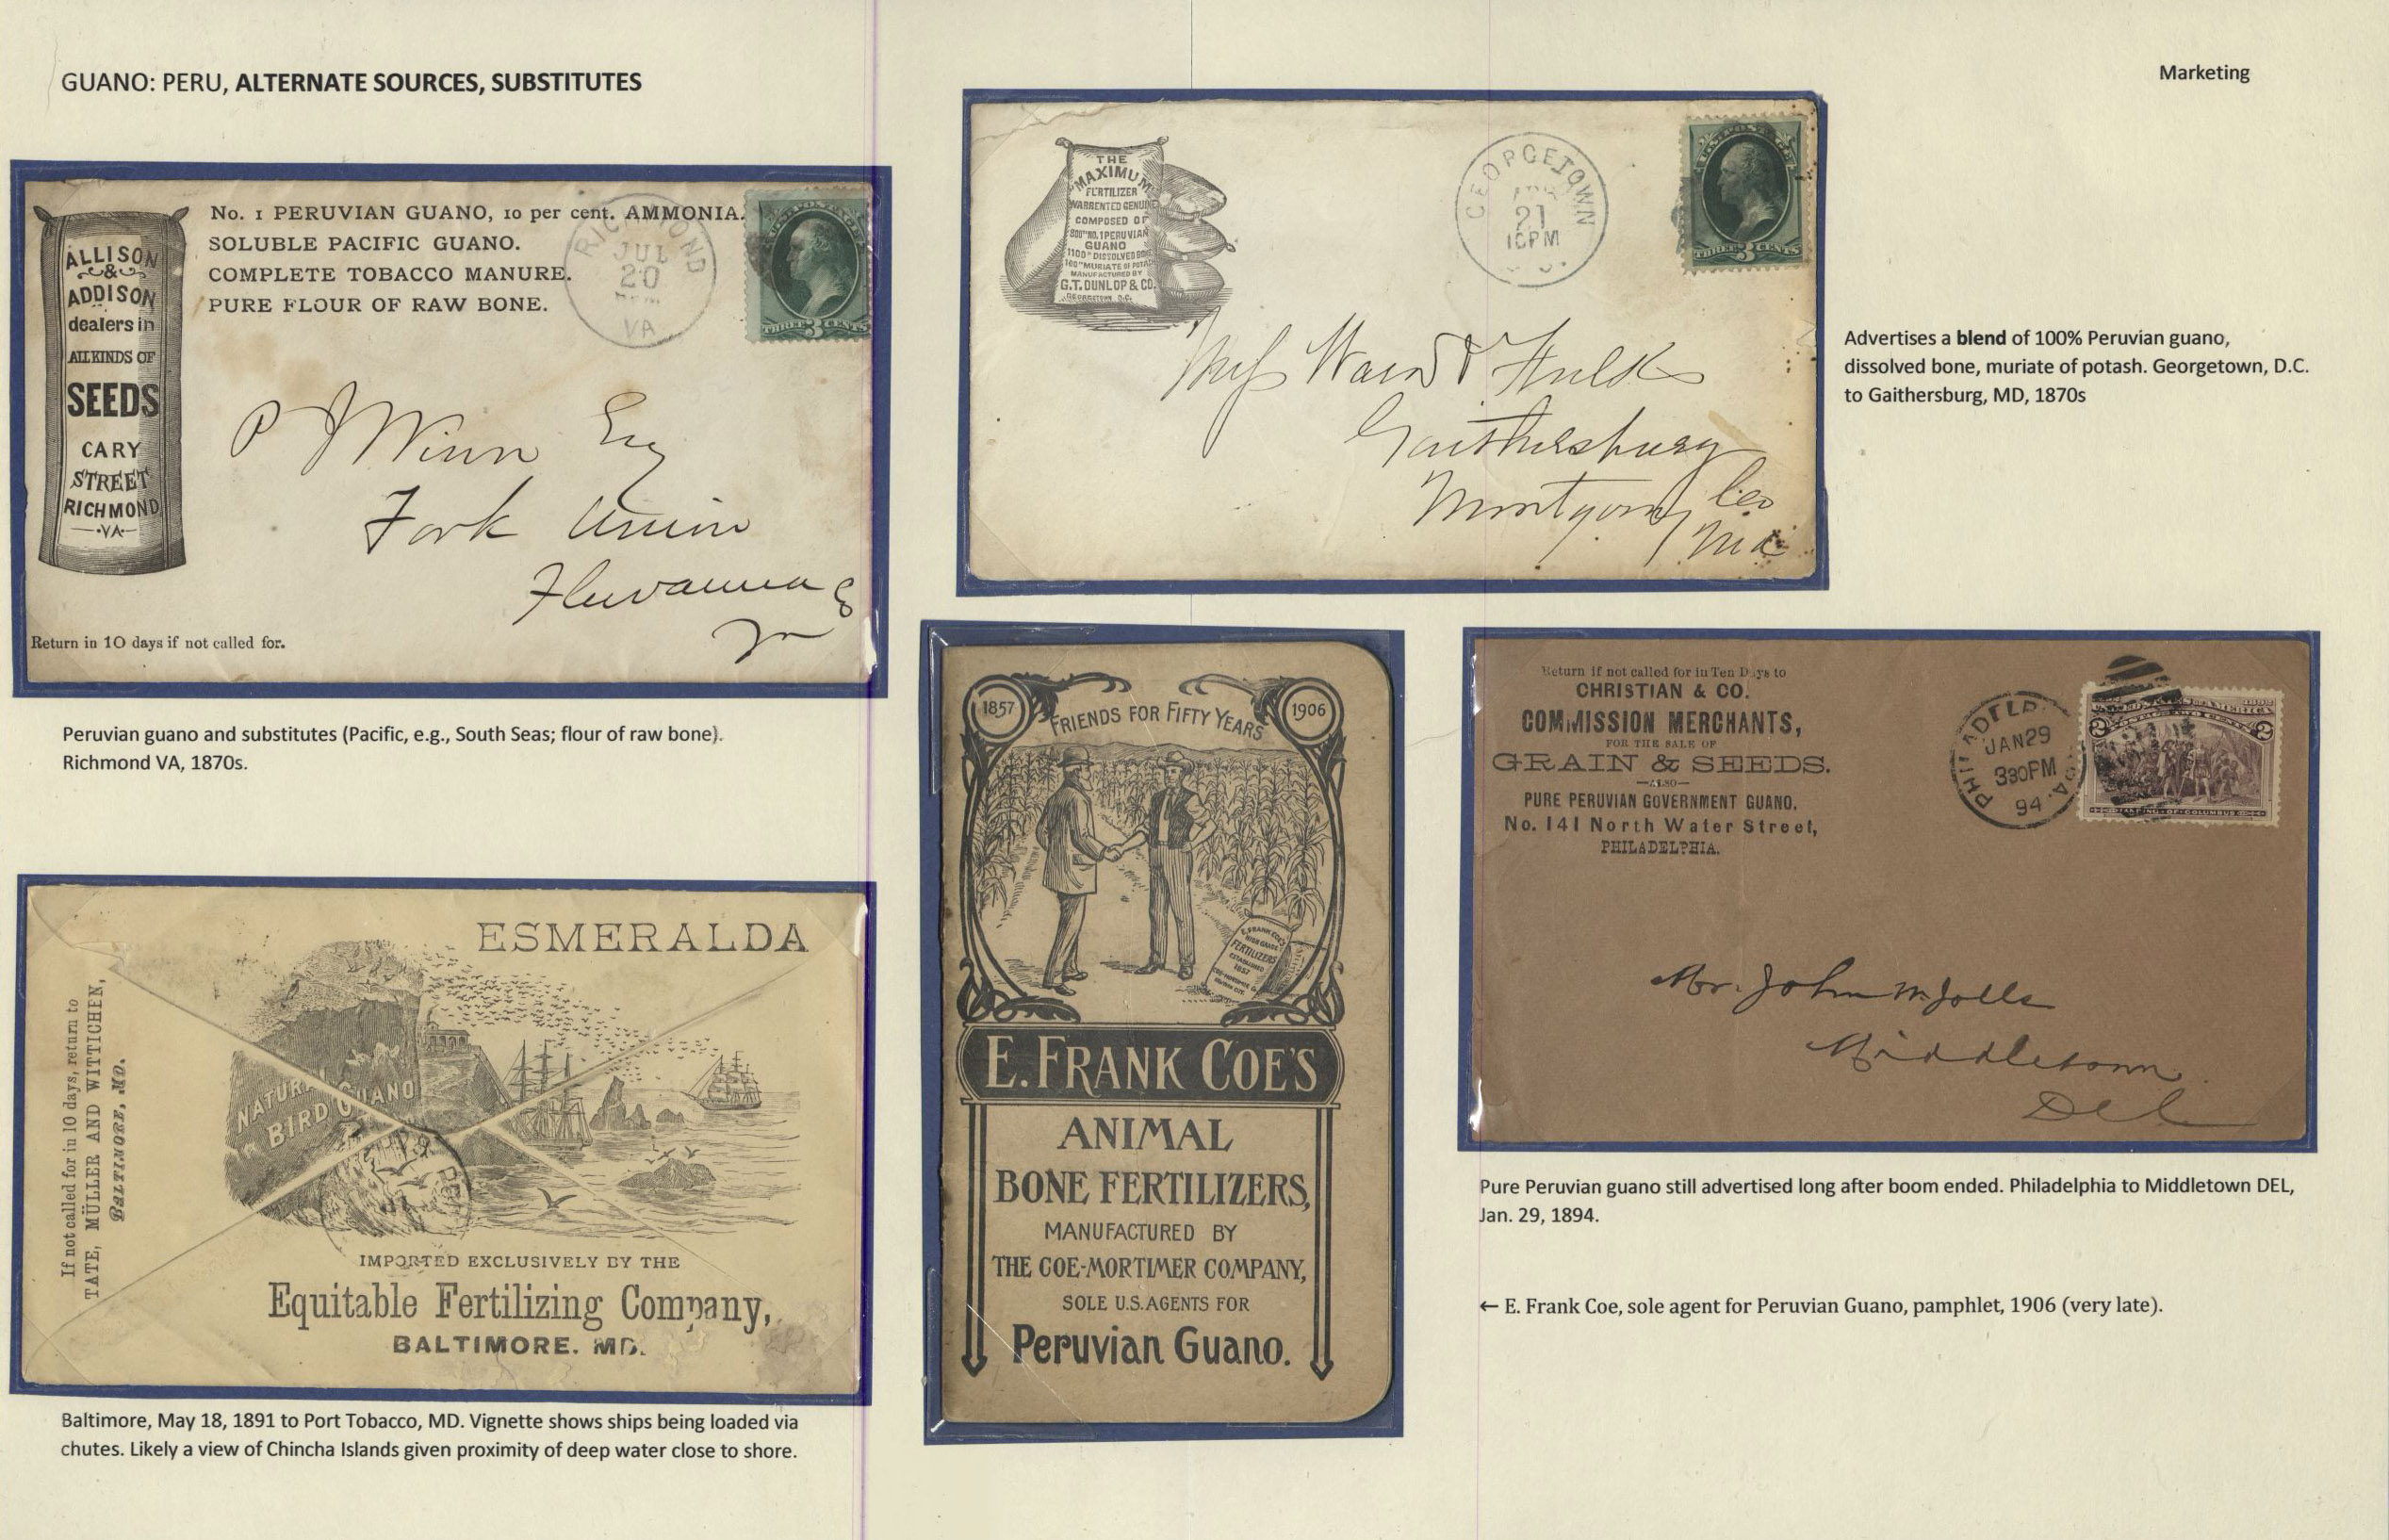 GUANO: PERU, ALTERNATE SOURCES, SUBSTITUTES
Marketing
ALLISON
&
ADDISON
dealers in
ALL KINDS OF
SEEDS
CARY
STREET
RICHMOND
VA
No. 1 PERUVIAN GUANO, 10 per cent. AMMONIA.
SOLUBLE PACIFIC GUANO.
COMPLETE TOBACCO MANURE.
PURE FLOUR OF RAW BONE.
RICHMOND
JUL
20
VA
THREE 3 CENTS
P J Winn Esq
Fork Union
Fluvanna Co
Va
Return in 10 days if not called for.
Peruvian guano and substitutes (Pacific, e.g., South Seas; flour of raw bone).
Richmond VA, 1870s.
THE
"MAXIMUM"
FERTILIZER
WARRENTED GENUINE
COMPOSED OF
800 lbs NO. 1 PERUVIAN
GUANO
1100 " DISSOLVED BONE
100 " MURIATE OF POTASH
MANUFACTURED BY
G.T. DUNLOP & CO.
GEORGETOWN, D.C.
GEORGETOWN
21
10PM
U.S. POSTAGE
THREE 3 CENTS
Mess Ward & Fulks
Gaithersburg
Montgomy Co
Md
Advertises a blend of 100% Peruvian guano,
dissolved bone, muriate of potash. Georgetown, D.C.
to Gaithersburg, MD, 1870s
ESMERALDA
NATURAL
BIRD GUANO
If not called for in 10 days, return to
TATE, MÜLLER AND WITTICHEN,
BALTIMORE, MD.
IMPORTED EXCLUSIVELY BY THE
Equitable Fertilizing Company,
BALTIMORE. MD.
Baltimore, May 18, 1891 to Port Tobacco, MD. Vignette shows ships being loaded via
chutes. Likely a view of Chincha Islands given proximity of deep water close to shore.
1857
FRIENDS FOR FIFTY YEARS
1906
E. FRANK COE'S
HIGH GRADE
FERTILIZERS
ESTABLISHED
1857
E. FRANK COE'S
ANIMAL
BONE FERTILIZERS,
MANUFACTURED BY
THE COE-MORTIMER COMPANY,
SOLE U.S. AGENTS FOR
Peruvian Guano.
Return if not called for in Ten Days to
CHRISTIAN & CO.
COMMISSION MERCHANTS,
FOR THE SALE OF
GRAIN & SEEDS.
—ALSO—
PURE PERUVIAN GOVERNMENT GUANO.
No. 141 North Water Street,
PHILADELPHIA.
PHILADELP PA.
JAN 29
330PM
94
UNITED STATES OF AMERICA
2 2
LANDING OF COLUMBUS
Mr. John W. Jolls
Middletown
Del
Pure Peruvian guano still advertised long after boom ended. Philadelphia to Middletown DEL,
Jan. 29, 1894.
← E. Frank Coe, sole agent for Peruvian Guano, pamphlet, 1906 (very late).